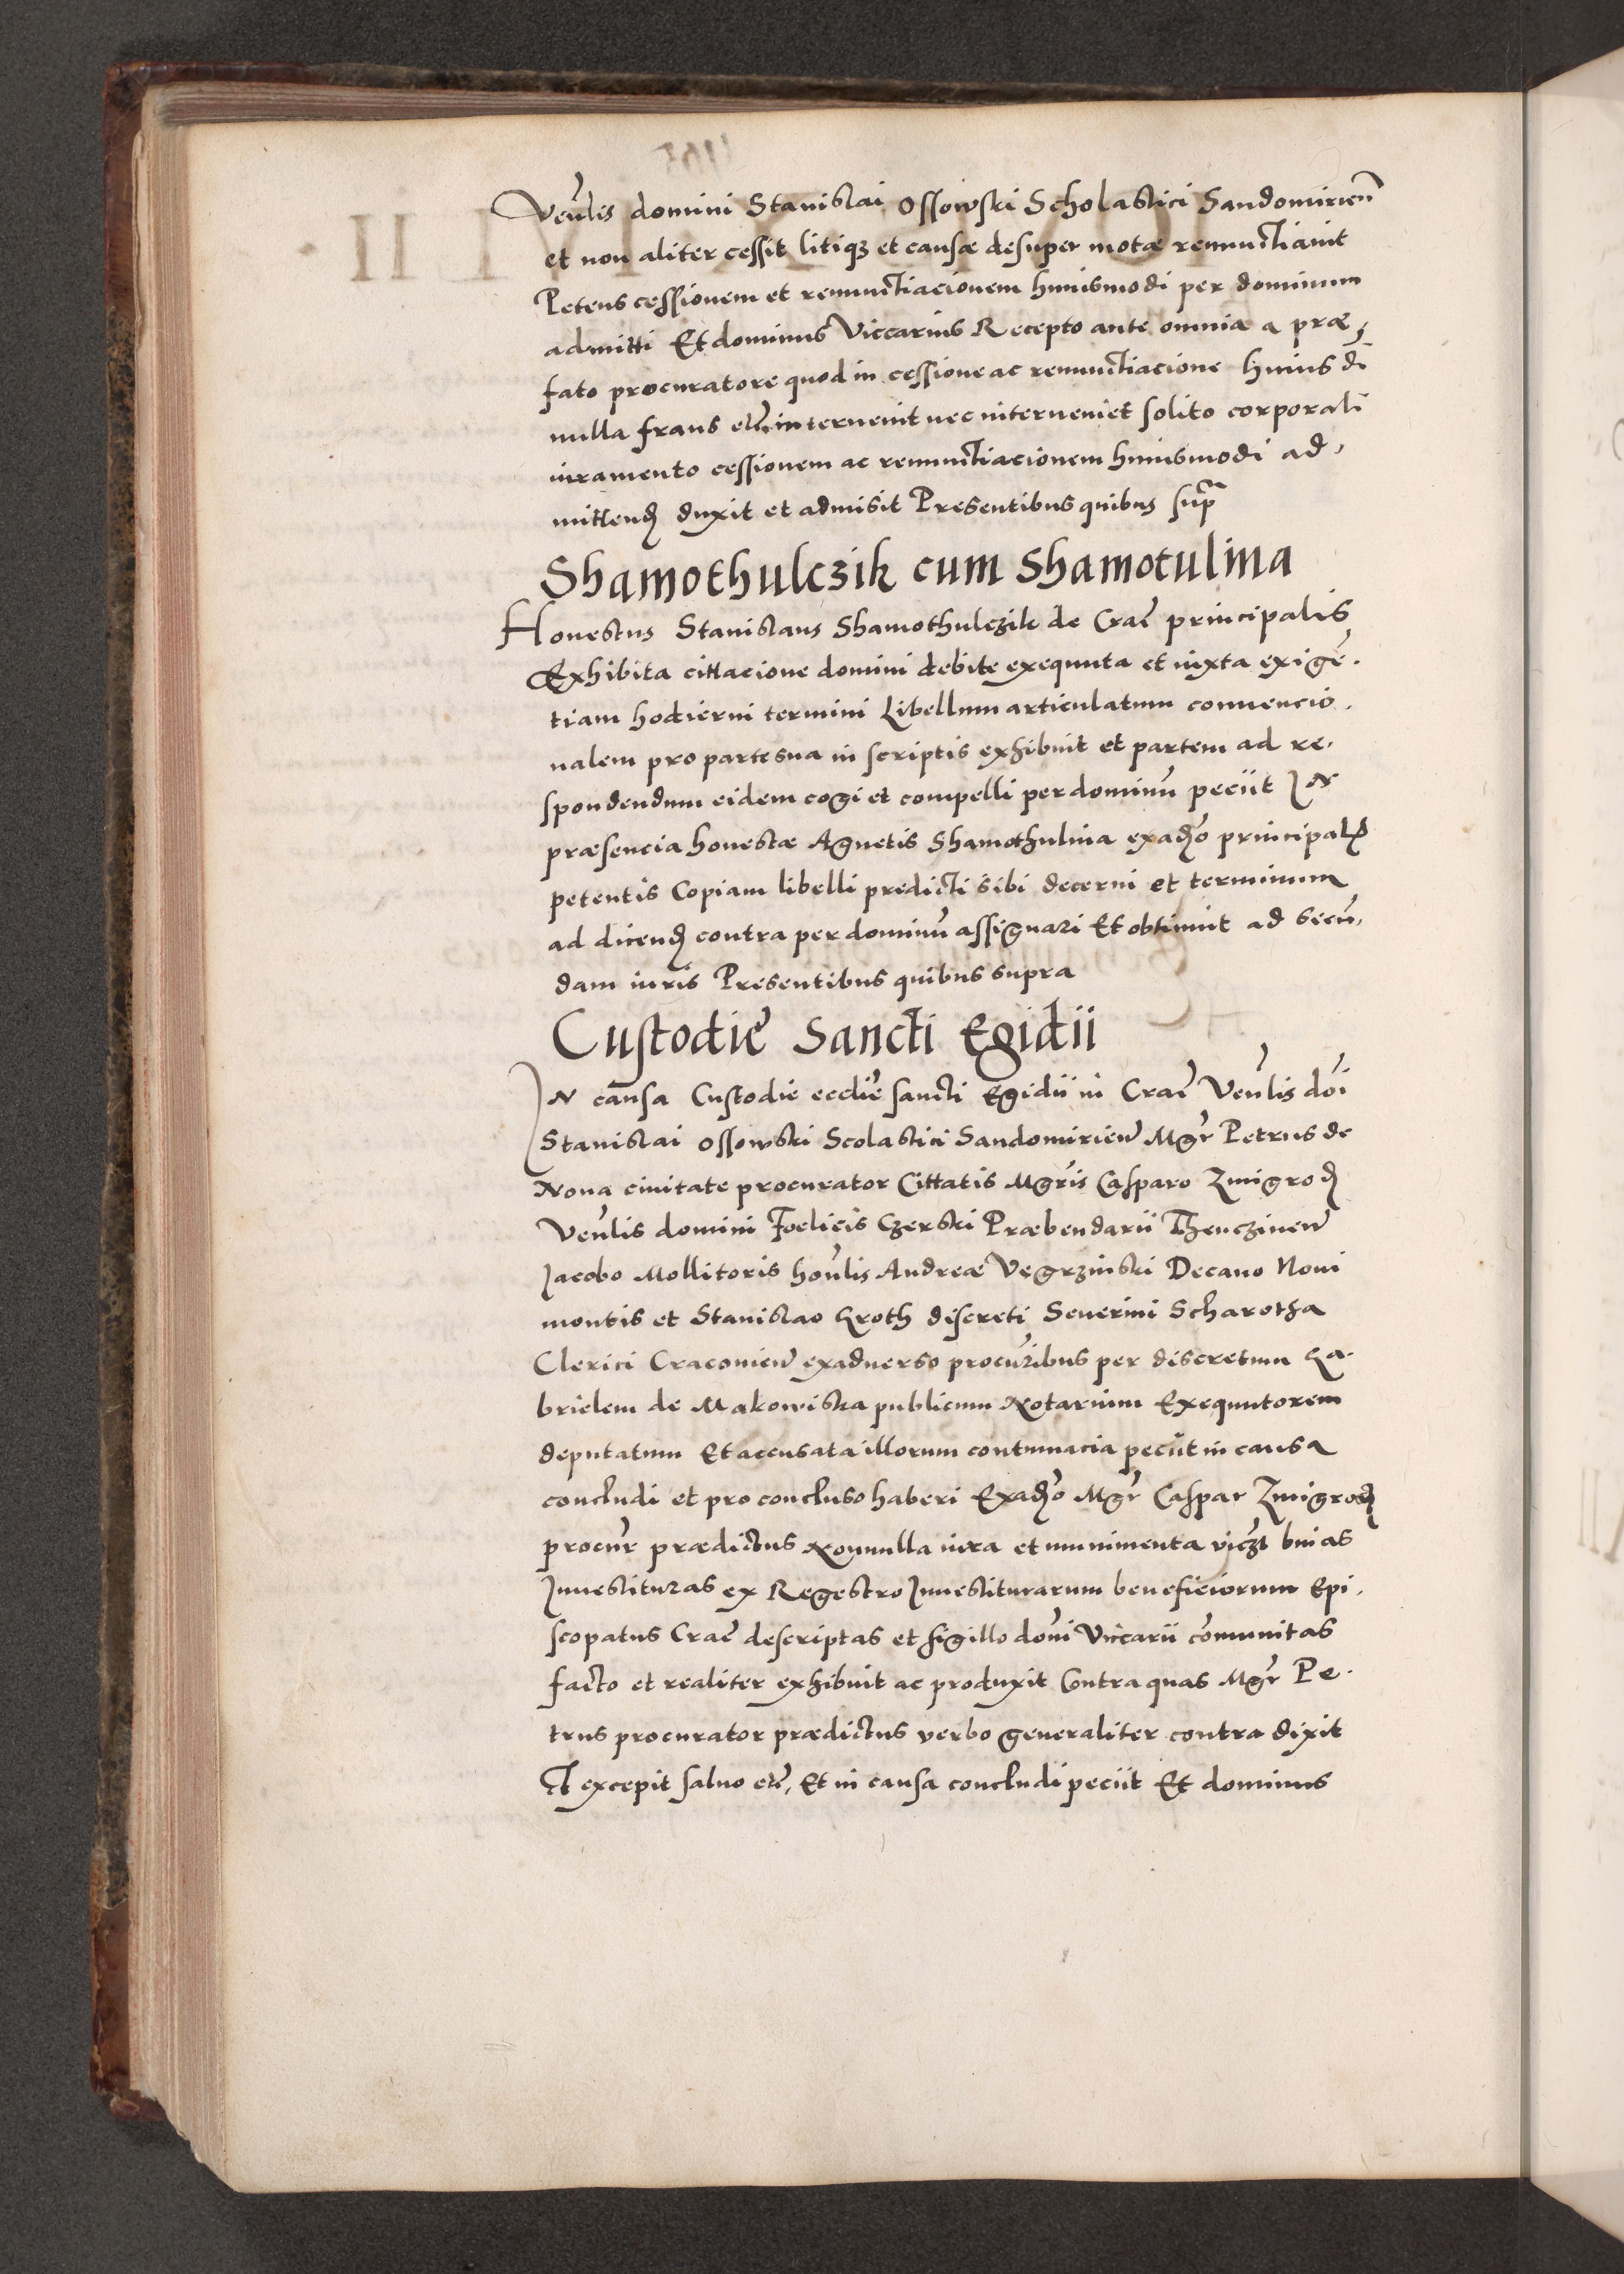 Veñlis domini Stanislai Ossowski Scholastici Sandomirieñ
et non aliter cessit litiqʒ et causæ desuper motæ renunctiauit
Petens cessionem et renunctiacionem huiusmodi per dominum
admitti Et dominus Viccarius Recepto ante omnia a præ,
fato procuratore quod in cessione ac renunctiacione huius di
nulla fraus etc̃ interuenit nec interueniet solito corporali
iuramento cessionem ac renunctiacionem huiusmodi ad,
mittend̨ duxit et admisit Presentibus quibus sup̃
Shamothulczik cum Shamotulina
Honestus Stanislaus Shamothulczik de Crac̃ principalis
Exhibita cittacione domini debite exequuta et iuxta exigẽ.
tiam hodierni termini Libellum articulatum conuencio.
nalem pro parte sua in scriptis exhibuit et partem ad re,
spondendum eidem cogi et compelli per dominũ peciit IN
præsencia honestæ Agnetis Shamothulina exad̨o principal
petentis Copiam libelli predicti sibi decerni et terminum
ad dicend̨ contra per dominũ assignari Et obtinuit ad secũ,
dam iuris Presentibus quibus supra
Custodiẽ Sancti Egidii
IN causa Custodie eccliẽ sancti Egidii in Crac̃ Veñlis dõi
Stanislai Ossowski Scolastici Sandomirieñ Mgr̃ Petrus de
Noua ciuitate procurator Cittatis Mgr̃is Casparo Zmigrod̨
Veñlis domini Foelicis Czerski Præbendarii Thenczineñ
Iacobo Mollitoris hoñlis Andreæ Vegrzinski Decano Noui
montis et Stanislao Groth discreti Seuerini Scharotha
Clerici Cracouieñ exaduerso procur̃ibus per discretum Ga.
brielem de Makowiska publicum Notarium Exequutorem
deputatum Et accusata illorum contumacia peciit in causa
concludi et pro concluso haberi Exad̨o Mgr̃ Caspar Zmigrod̨
procur̃ prædictus Nonnulla iura et munimenta viczt binas
Inuestituras ex Regestro Inuestiturarum beneficiorum Epi.
scopatus Crac̃ descriptas et sigillo dom̃i Viccarii cõmunitas
facto et realiter exhibuit ac produxit Contra quas Mgr̃ Pe.
trus procurator prædictus verbo generaliter contra dixit
Et excepit saluo etc̃, Et in causa concludi peciit Et dominus